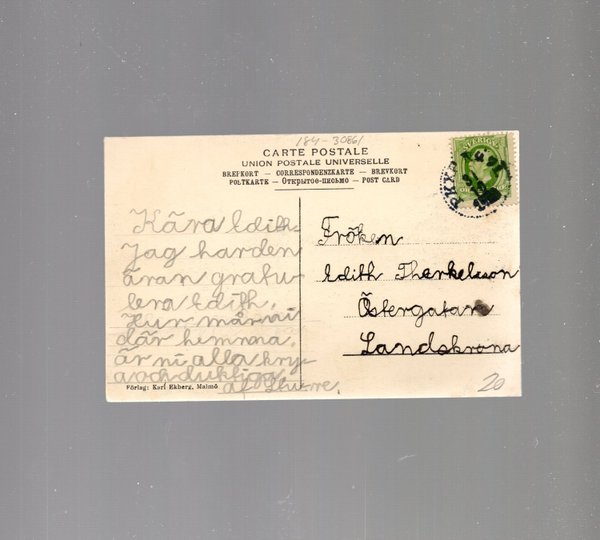 184-30861
CARTE POSTALE
UNION POSTALE UNIVERSELLE
BREFKORT — CORRESPONDENZKARTE — BREVKORT
POLTKARTE — Открытое-письмо — POST CARD
SVERIGE
Kära Edith
Jag harden
äran gratu-
lera Edith.
Hur mår ni
där hemma,
är ni alla kry-
a och duktiga
af Sturre.
Fröken
Edith Therkelsson
Östergatan
Landskrona
Förlag: Karl Ekberg, Malmö
20